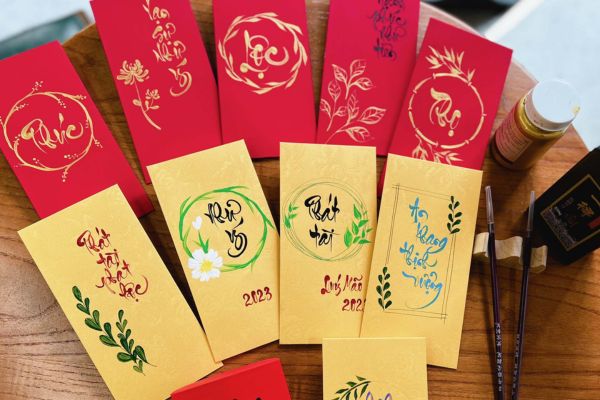 Phúc
Vạn
Sự
Như
Ý
Lộc
Thọ
Phát
tài
phát
lộc
Như
ý
2023
Phát
tài
Quý Mão
An
Khang
thịnh
vượng